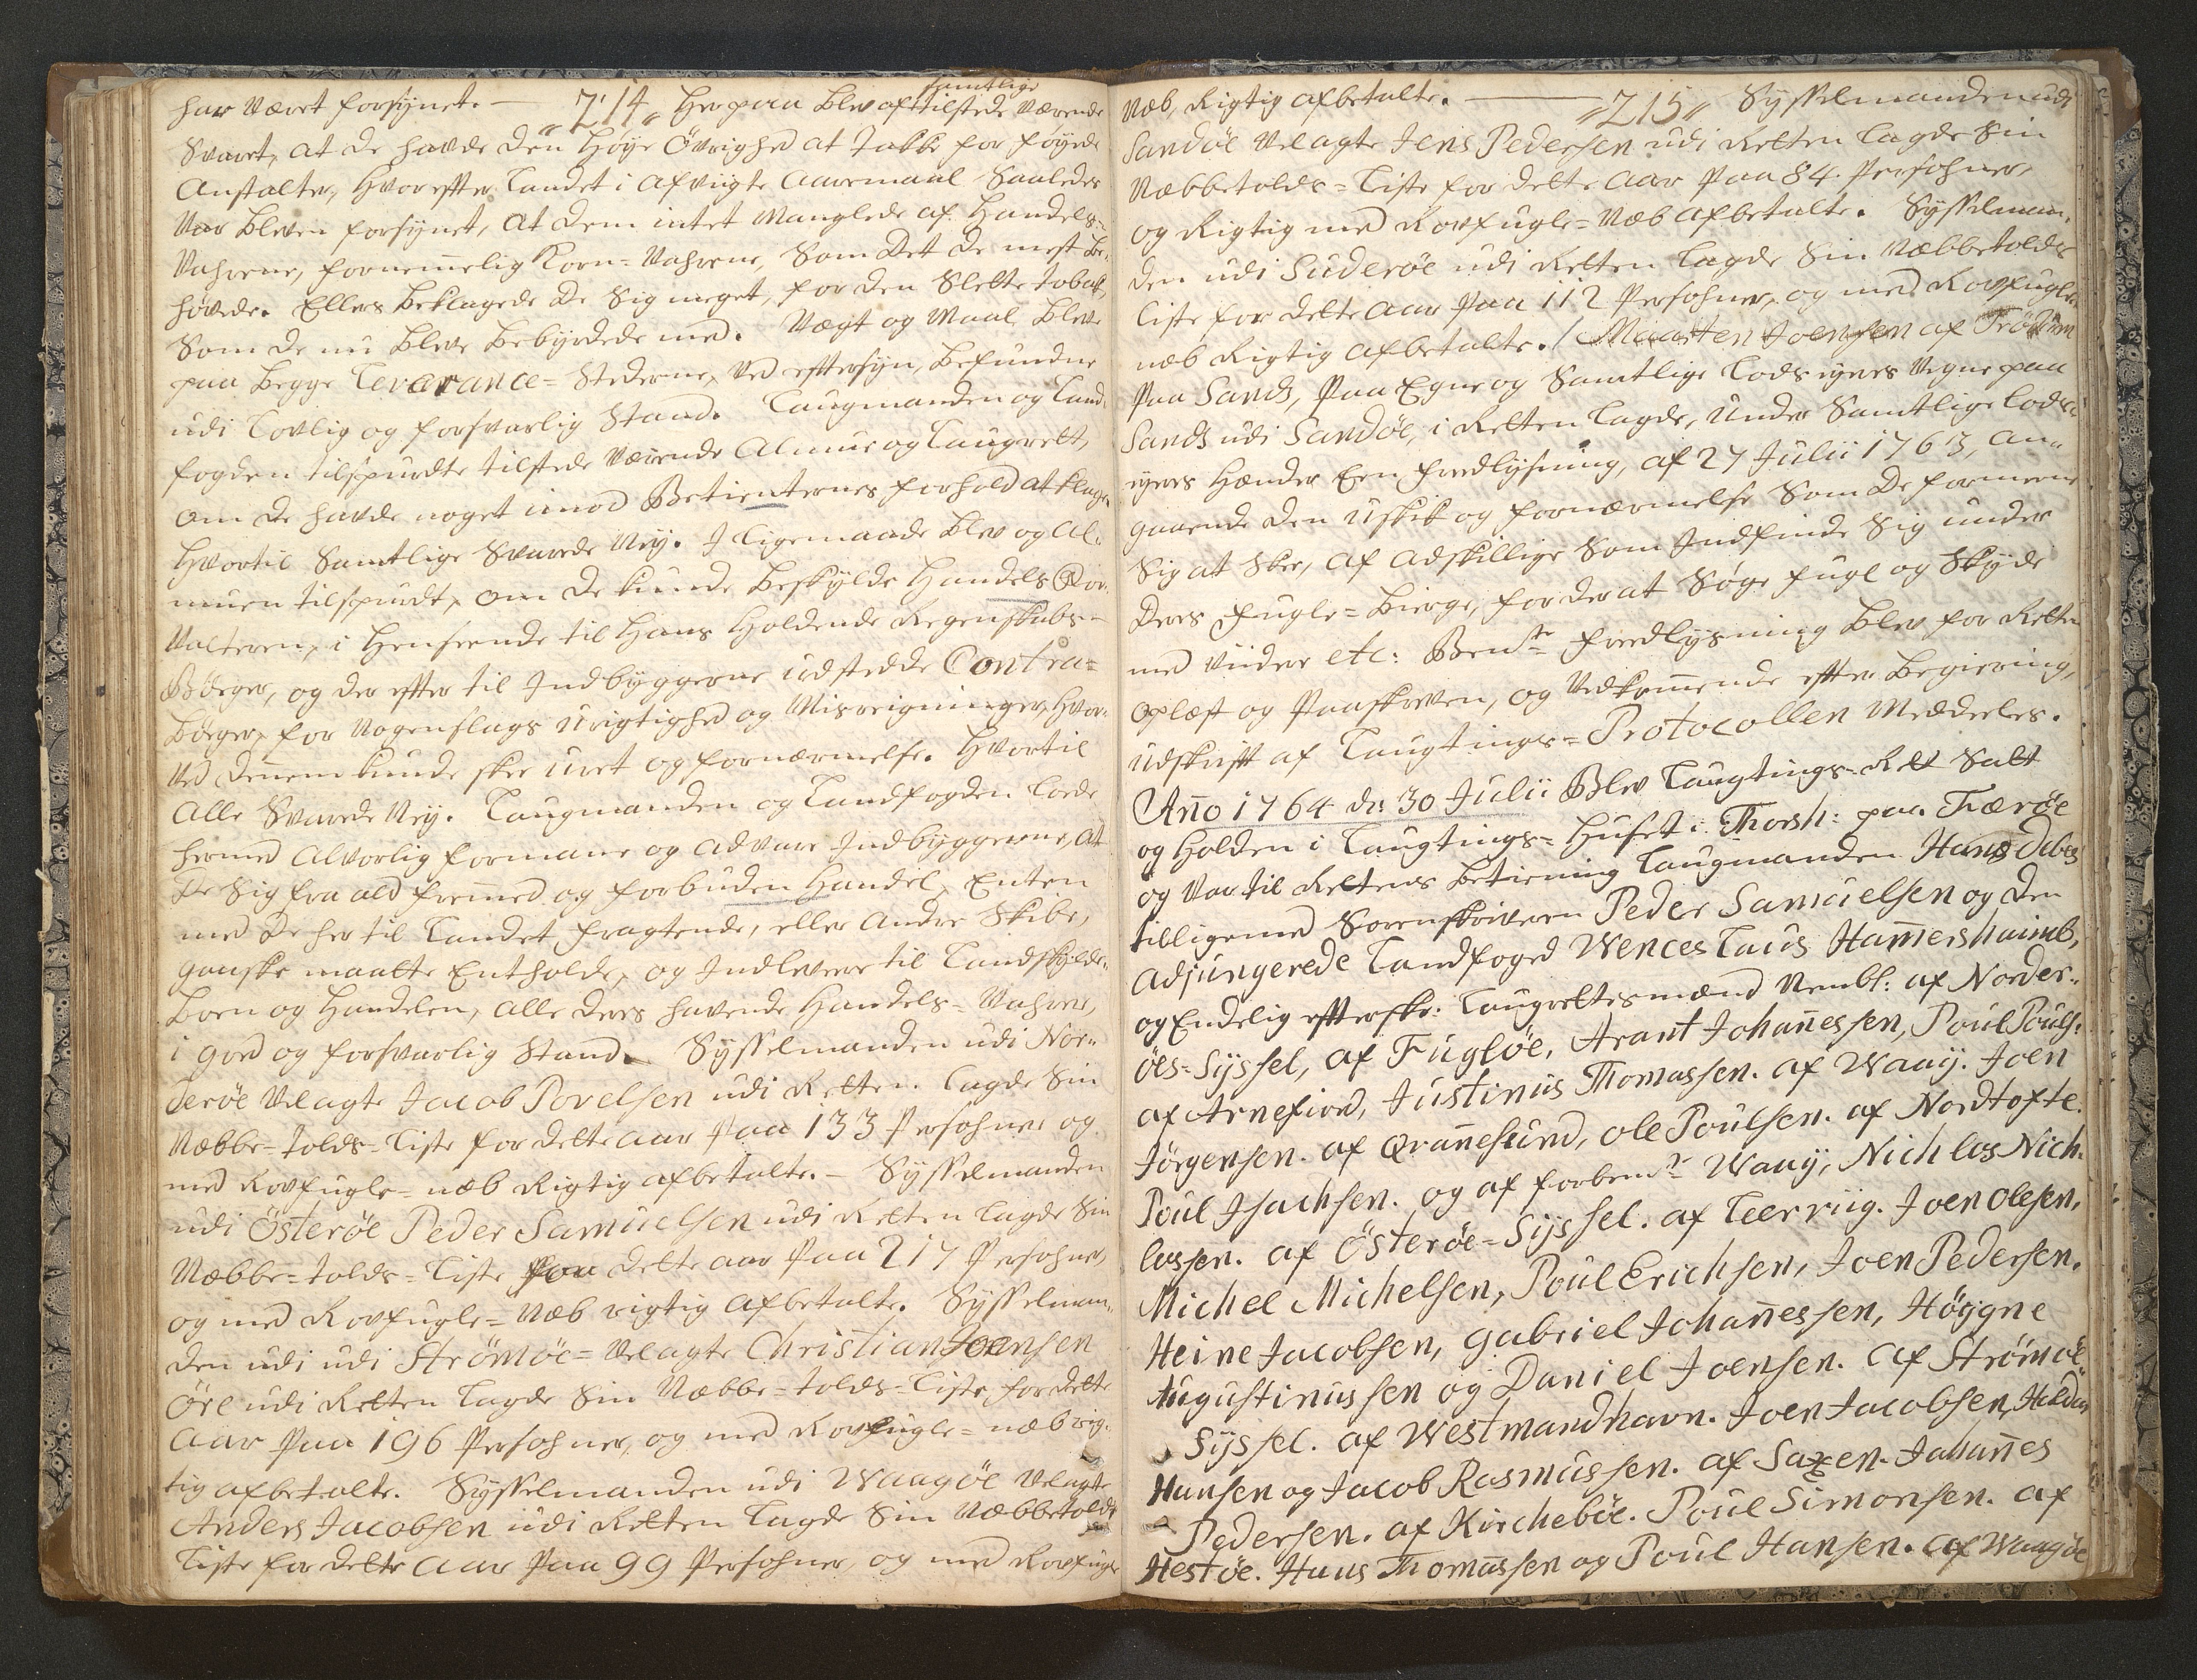 har Været forsÿnet. — „214„ Herpaa blev af samtlige tilstede Værende
Svaret, at de havde den Høÿe Övrighed at takke for föÿede
Anstalter, hvorefter Landet i afvigte Aaremaal Saaledes
Var bleven forsÿnet, at dem intet Manglede af Handels-
Vahrene, fornem̄elig Korn-Vahrene, Som det de mest be-
hövede. Ellers beklagede de Sig meget, for den Slette tobak,
Som de nu bleve bebÿrdede med. Vægt og Maal bleve
paa begge Leverance-Stederne, ved eftersÿn, befundne
udi Lovlig og forsvarlig Stand. Laugmanden og Land-
fogden tilspurdte tilstede Værende Almue og Laugrett,
om de havde noget imod Betienternes forhold at klage,
hvortil Samtlige Svarede Neÿ. I ligemaade blev og Al-
muen tilspurdt, om de kunde beskÿlde Handels For-
valteren, i Henseende til Hans Holdende Regenskabs-
Böger, og der efter til Indbÿggerne udstedde Contra-
böger, for Nogenslags Urigtighed og Misreigninger, hvor-
ved dennem kunde skee Uret og fornærmelse. Hvortil
Alle Svarede Neÿ. Laugmanden og Landfogden Loed
hermed Alvorlig formane og advare Indbÿggerne, at
de Sig fra ald frem̄ed og forbuden Handel, Enten
med de her til Landet fragtende, eller andre Skibe,
ganske maatte Entholde, og Indlevere til Landskÿlds-
boen og Handelen, alle deres havende Handels-Vahrer,
i god og forsvarlig Stand. Sÿsselmanden udi Nor-
deröe Velagte Jacob Povelsen udi Retten lagde Sin
Næbbe-tolds-Liste for dette aar paa 133 Persohner og
med Rovfugle-næb Rigtig afbetalte. — Sÿsselmanden
udi Österöe Peder Samuelsen udi Retten lagde Sin
Næbbe-tolds-Liste for dette aar paa 217 Persohner,
og med Rovfugle-Næb rigtig afbetalte. Sÿsselman-
den udi udi Strömöe-Velagte Christian Joensen
Öre udi Retten lagde Sin Næbbe-tolds-Liste, for dette
Aar paa 196 Persohner, og med Rovfugle-næb rig-
tig afbetalte. Sÿsselmanden udi Waagöe Velagte
Anders Jacobsen udi Retten lagde Sin Næbbetolds
Liste for dette aar paa 99 Persohner, og med Rovfugle
Næb, Rigtig afbetalte. — „215„ Sÿsselmanden udi
Sandöe Velagte Jens Pedersen udi Retten lagde Sin
Næbbetolds-Liste for dette aar paa 84 Persohner,
og Rigtig med Rovfugle-Næb afbetalte. Sÿsselman-
den udi Suderöe udi Retten lagde Sin Næbbetolds
Liste for dette aar paa 112 Persohner, og med Rovfugle-
næb Rigtig afbetalte. / Maarten Joensen af Trödum
paa Sands, paa Egne og Samtlige Lods eÿeres Vegne paa
Sands udi Sandöe, i Retten lagde, under Samtlige Lods-
eÿeres Hænder Een fredlÿsning, af 27 Julii 1763, an-
gaaende den Uskik og fornærmelse Som de formeene
Sig at Skee, af adskillige Som Indfinde Sig under
deres Fugle-bierge, for der at Söge fugl og Skÿde
med Viidere etc: Bemte fredlÿsning blev for Retten
oplæst og paaskreven, og Vedkom̄ende efter begiering,
udskrift af Laugtings-Protocollen Meddeeles.
Añо 1764 d: 30 Julii Blev Laugtings-Rett Satt
og Holden i Laugtings-Huset i Thorsh: paa Færöe
og Var til Rettens betiening Laugmanden Hans Debes
tilligemed Sorenskriveren Peder Samuelsen og den
Adjungerede Landfoged Wenceslaus Ham̄ershaimb,
og Endelig efterskr: Laugrettesmænd Nembl: af Norder-
öes-Sÿssel, af Fuglöe, Arant Johañessen, Poul Pouls:
af Arnefiord, Justinus Thomassen. af Waaÿ. Joen
Jörgensen. af Qvañesund, Ole Poulsen. af Nordtofte.
Poul Isachsen. og af forbemte Waaÿ, Nichlos Nich-
lassen. af Österöe-Sÿssel. af Leerviig. Joen Olesen,
Michel Michelsen, Poul Erichsen, Joen Pedersen.
Heine Jacobsen, Gabriel Johañessen, Höÿgne
Augustinussen og Daniel Joensen. af Strömöe
Sÿssel. af Westmandhavn. Joen Jacobsen, Haldan
Hansen og Jacob Rasmussen. af Saxen. Johañes
Pedersen. af Kircheböe. Poul Simonsen. af
Hestöe. Hans Thomassen og Poul Hansen. af Waagöe